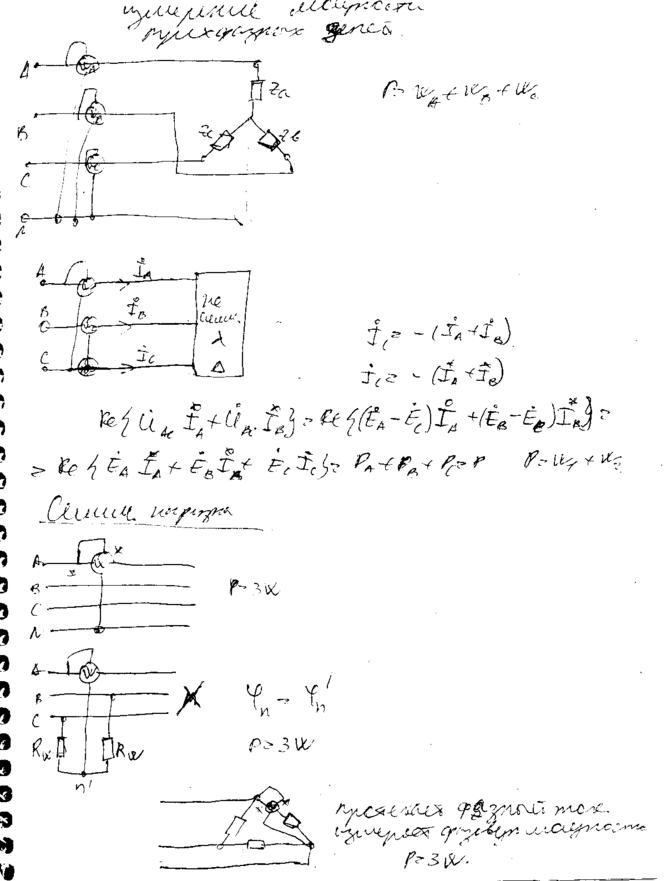 измерение мощности
трехфазных цепей.
A
W_A
Z_a
P = W_A + W_B + W_C
B
Z_c
Z_b
C
N
A
İ_A
B
İ_B
не
симм.
C
İ_C
λ
Δ
İ_C = -(İ_A + İ_B)
İ_C = -(İ_A + İ_B)
Re{U̇_AC İ_A + U̇_BC İ_B} = Re{(Ė_A - Ė_C) İ_A + (Ė_B - Ė_C) İ_B} =
= Re{Ė_A İ_A + Ė_B İ_B + Ė_C İ_C} = P_A + P_B + P_C = P P = W_1 + W_2
Симм нагрузка
A
B
C
N
P = 3W
A
W
B
C
φ_n = φ_n'
R_W
R_W
P = 3W
n'
протекает фазный ток.
измеряет фазную мощность
P = 3W.